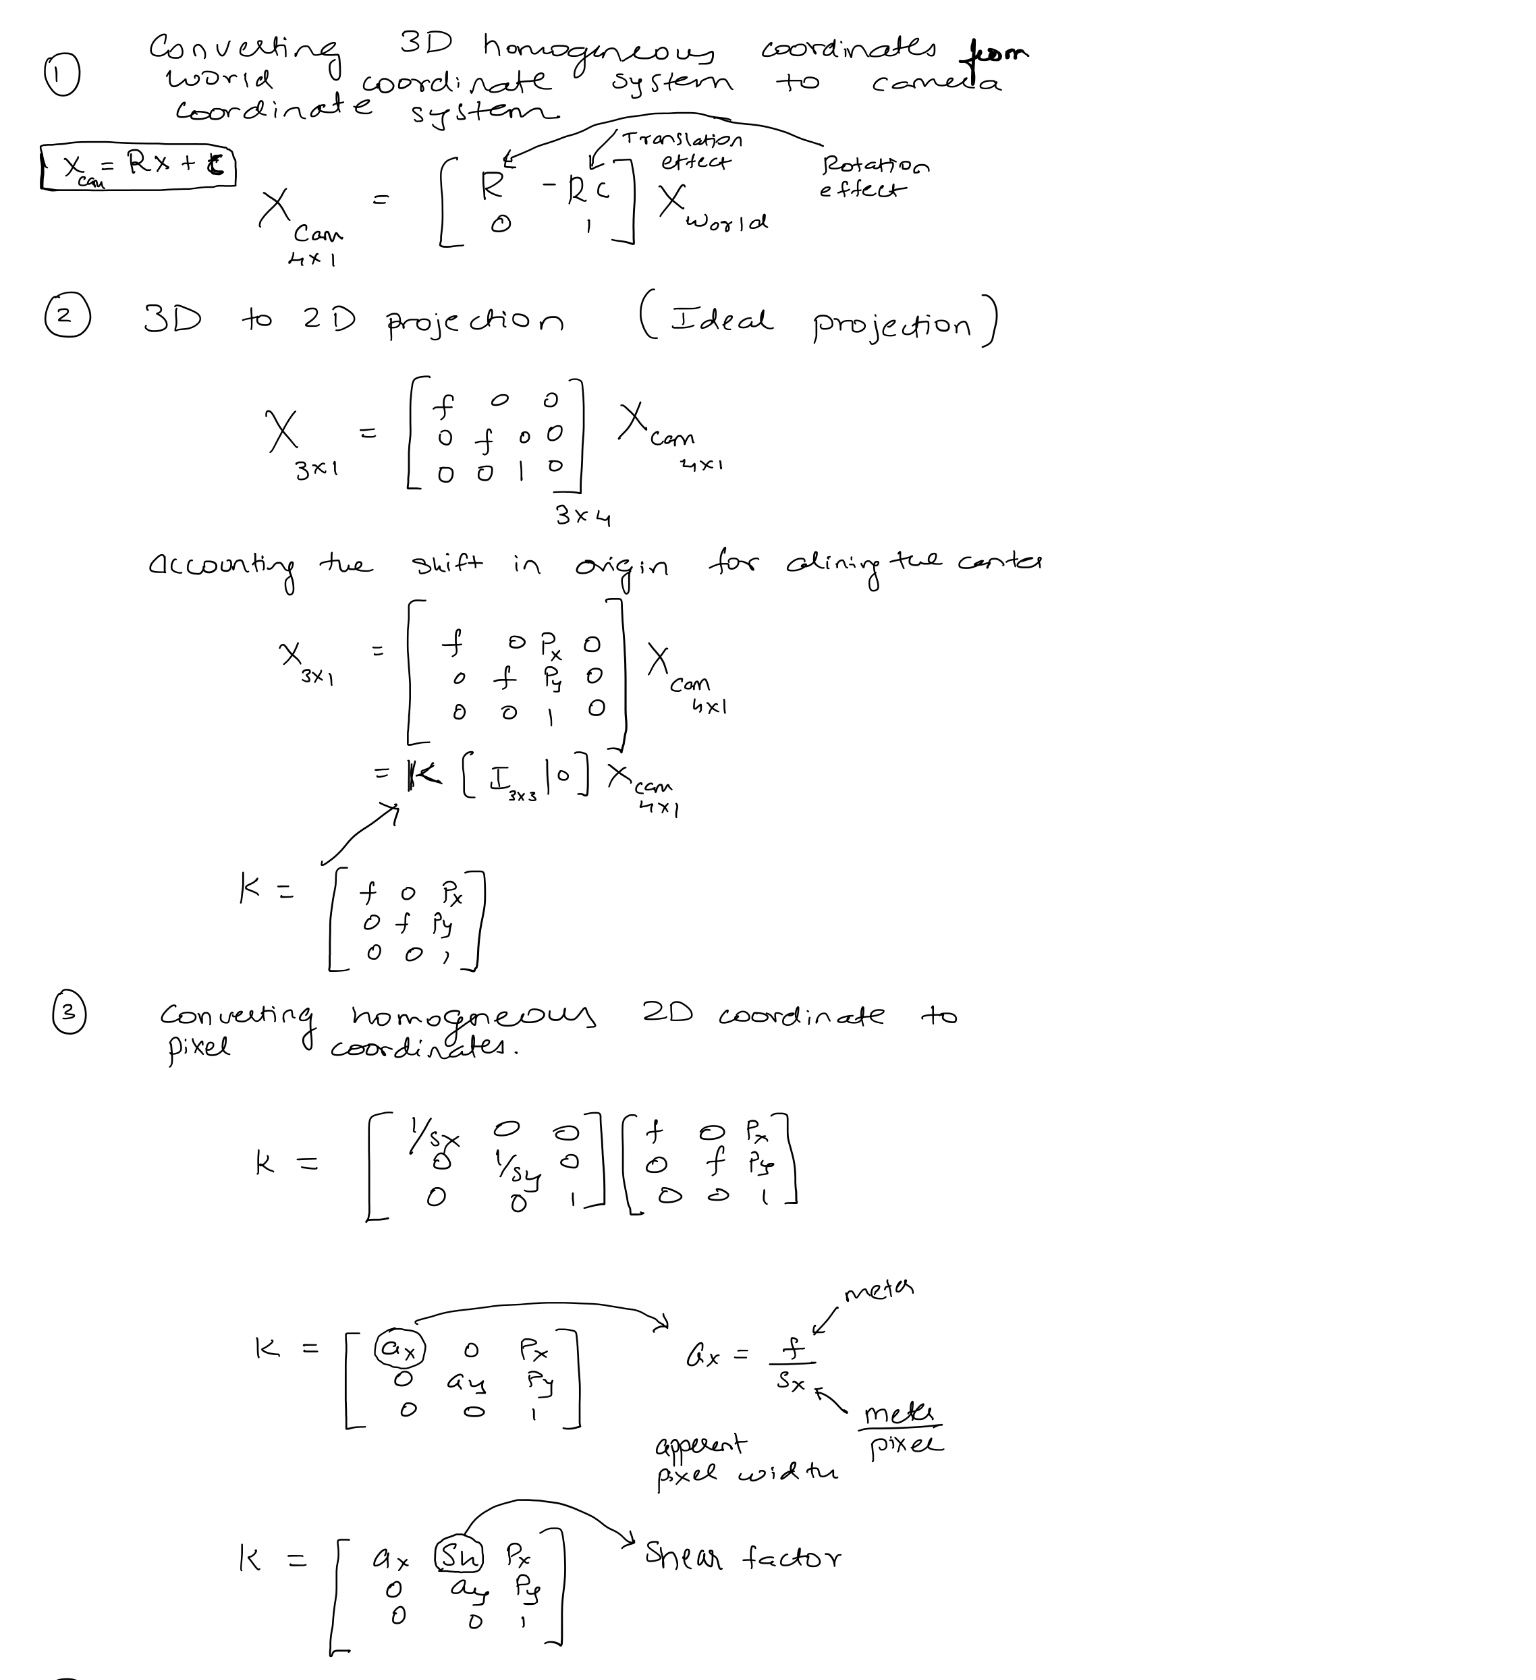 ① Converting 3D homogeneous coordinates from
world coordinate system to camera
coordinate system
X_cam = Rx + t
Translation effect
Rotation effect
X_cam 4x1 = [ R -RC ; 0 1 ] X_world
② 3D to 2D projection (Ideal projection)
X_3x1 = [ f 0 0 ; 0 f 0 0 ; 0 0 1 0 ] 3x4 X_cam 4x1
Accounting the shift in origin for alining the center
X_3x1 = [ f 0 Px 0 ; 0 f Py 0 ; 0 0 1 0 ] X_cam 4x1
= K [ I_3x3 | 0 ] X_cam 4x1
K = [ f 0 Px ; 0 f Py ; 0 0 1 ]
③ Converting homogneous 2D coordinate to
pixel coordinates.
K = [ 1/sx 0 0 ; 0 1/sy 0 ; 0 0 1 ] [ f 0 Px ; 0 f Py ; 0 0 1 ]
meter
K = [ ax 0 Px ; 0 ay Py ; 0 0 1 ] ax = f / sx
meter / pixel
apperent
pixel width
K = [ ax Sh Px ; 0 ay Py ; 0 0 1 ] Shear factor